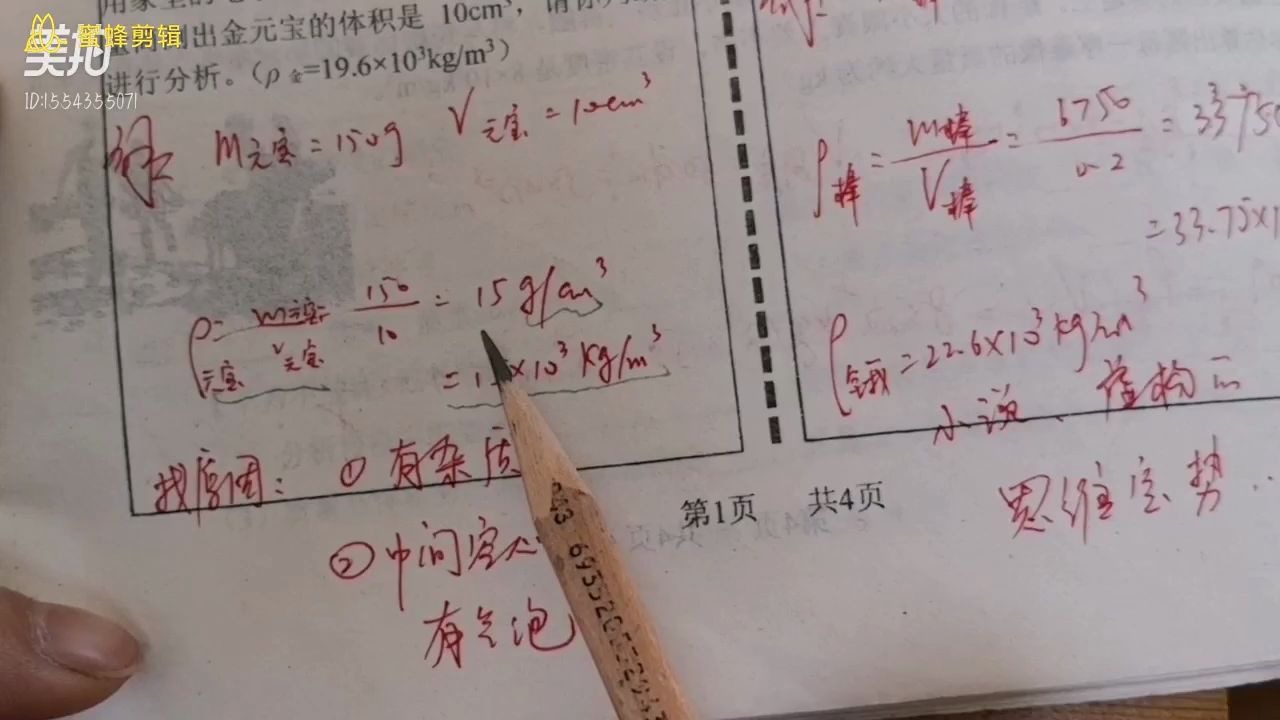 蜜蜂剪辑
美拍
ID:1554355071
测出金元宝的体积是 10cm³,请你
进行分析。(ρ金=19.6×10³kg/m³)
解 m元宝=150g V元宝=10cm³
ρ元宝=m元宝/V元宝=150/10=15g/cm³
=15×10³kg/m³
找原因:①有杂质
②中间空心
有气泡
第1页 共4页
ρ棒=m棒/V棒=6750/0.2=3375
=33.75×1
ρ锇=22.6×10³kg/m³
小说、虚构而
思维定势..